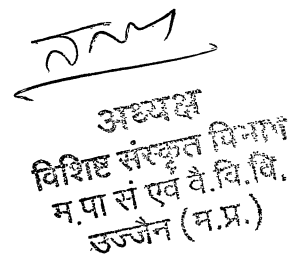 अध्यक्ष
विशिष्ट संस्कृत विभाग
म.पा सं एवं वै.वि.वि.
उज्जैन (म.प्र.)